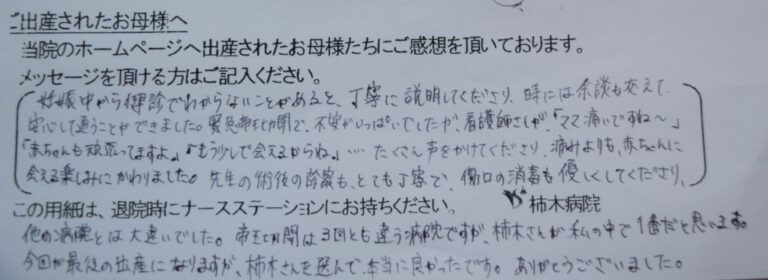 ご出産されたお母様へ
当院のホームページへ出産されたお母様たちにご感想を頂いております。
メッセージを頂ける方はご記入ください。
妊娠中から健診でわからないことがあると、丁寧に説明してくださり、時には余談も交えて、
安心して通うことができました。緊急帝王切開で、不安がいっぱいでしたが、看護師さんが、「ママ痛いですね〜」
「赤ちゃんも頑張ってますよ。」「もう少しで会えるからね。」…… たくさん声をかけてくださり、痛みよりも、赤ちゃんに
会える楽しみにかわりました。先生の術後の診察も、とても丁寧で、傷口の消毒も優しくしてくださり、
この用紙は、退院時にナースステーションにお持ちください。 柿木病院
他の病院とは大違いでした。帝王切開は3回とも違う病院ですが、柿木さんが私の中で1番だと思います。
今回が最後の出産になりますが、柿木さんを選んで、本当に良かったです。ありがとうございました。